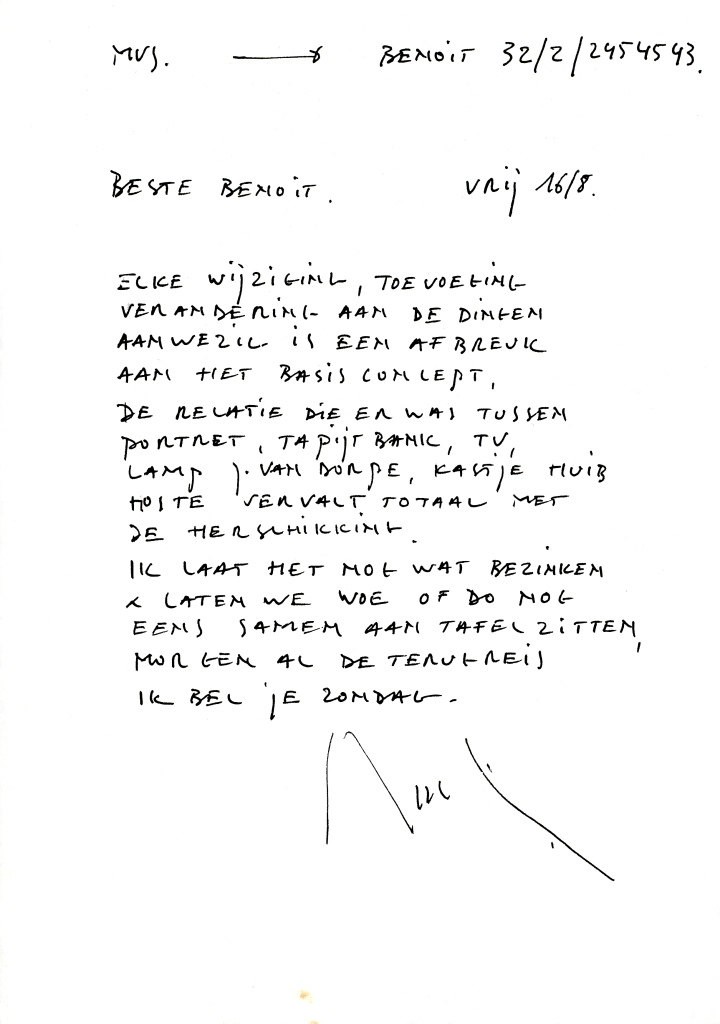 MVS. → BENOIT 32/2/2454543.
BESTE BENOIT. VRIJ 16/8.
ELKE WIJZIGING, TOEVOEGING
VERANDERING AAN DE DINGEN
AANWEZIG IS EEN AFBREUK
AAN HET BASISCONCEPT,
DE RELATIE DIE ER WAS TUSSEN
PORTRET, TAPIJT BANK, TV,
LAMP J. VAN DORPE, KASTJE HUIB
HOSTE VERVALT TOTAAL MET
DE HERSCHIKKING.
IK LAAT HET NOG WAT BEZINKEN
& LATEN WE WOE OF DO NOG
EENS SAMEN AAN TAFEL ZITTEN,
MORGEN AL DE TERUGREIS
IK BEL JE ZONDAG.